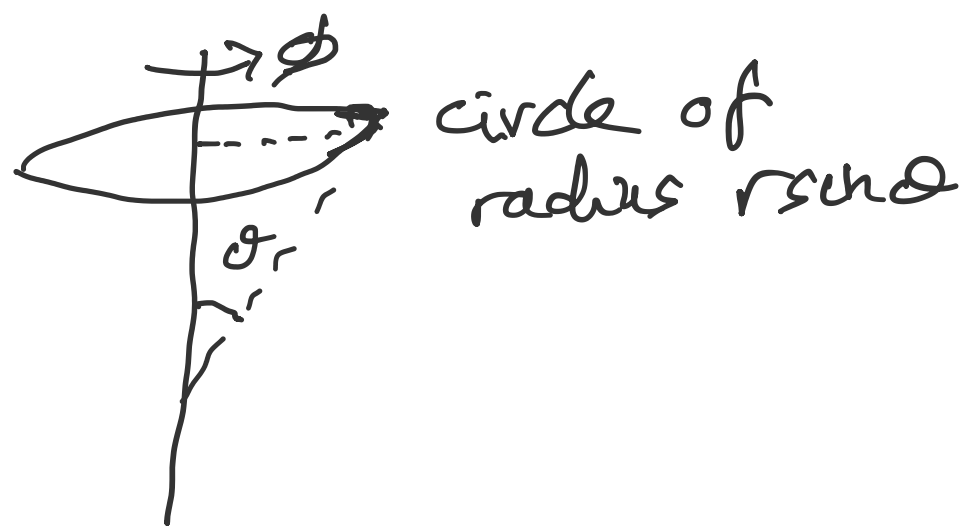 φ
circle of
radius rsinθ
θ
r